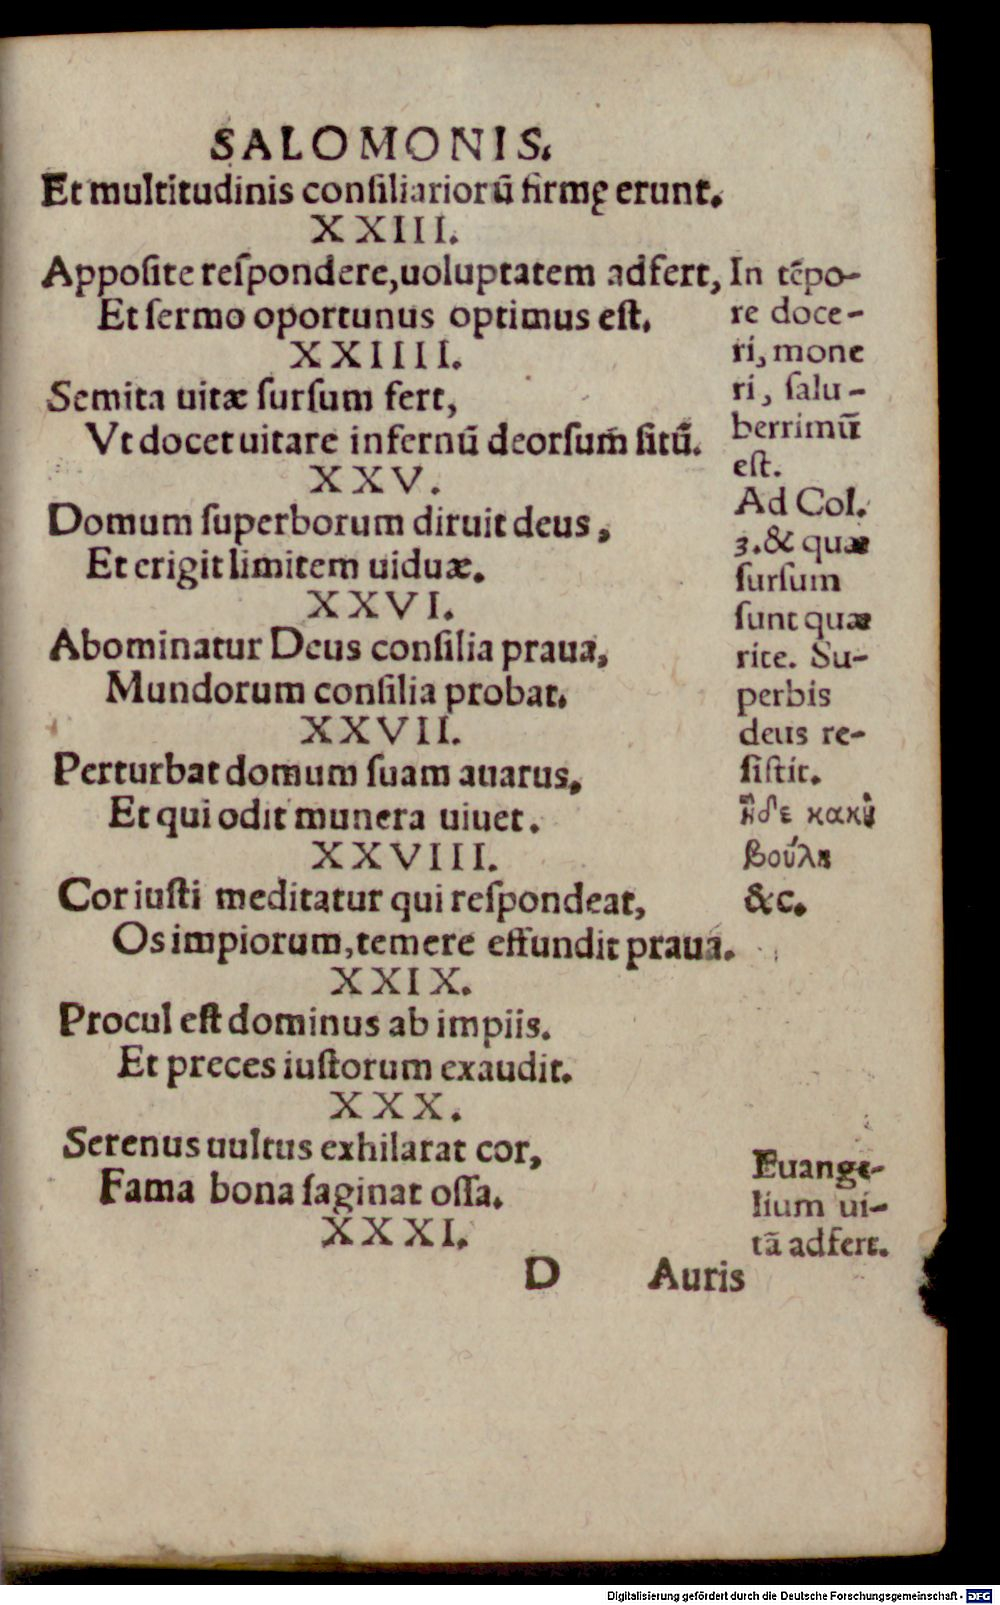 SALOMONIS.
Et multitudinis conſiliariorū firmę erunt.
XXIII.
Appoſite reſpondere, uoluptatem adfert,
Et ſermo oportunus optimus eſt.
XXIIII.
Semita uitæ ſurſum fert,
Vt docet uitare infernū deorſum ſitū.
XXV.
Domum ſuperborum diruit deus,
Et erigit limitem uiduæ.
XXVI.
Abominatur Deus conſilia praua,
Mundorum conſilia probat.
XXVII.
Perturbat domum ſuam auarus,
Et qui odit munera uiuet.
XXVIII.
Cor iuſti meditatur qui reſpondeat,
Os impiorum, temere effundit praua.
XXIX.
Procul eſt dominus ab impiis.
Et preces iuſtorum exaudit.
XXX.
Serenus uultus exhilarat cor,
Fama bona ſaginat oſſa.
XXXI.
D Auris
In tēpo-
re doce-
ri, mone
ri, ſalu-
berrimū
eſt.
Ad Col.
3. & quæ
ſurſum
ſunt quæ
rite. Su-
perbis
deus re-
ſiſtit.
ἥδε κακὴ
βούλη
&c.
Euange-
lium ui-
tā adfert.
Digitalisierung gefördert durch die Deutsche Forschungsgemeinschaft - DFG